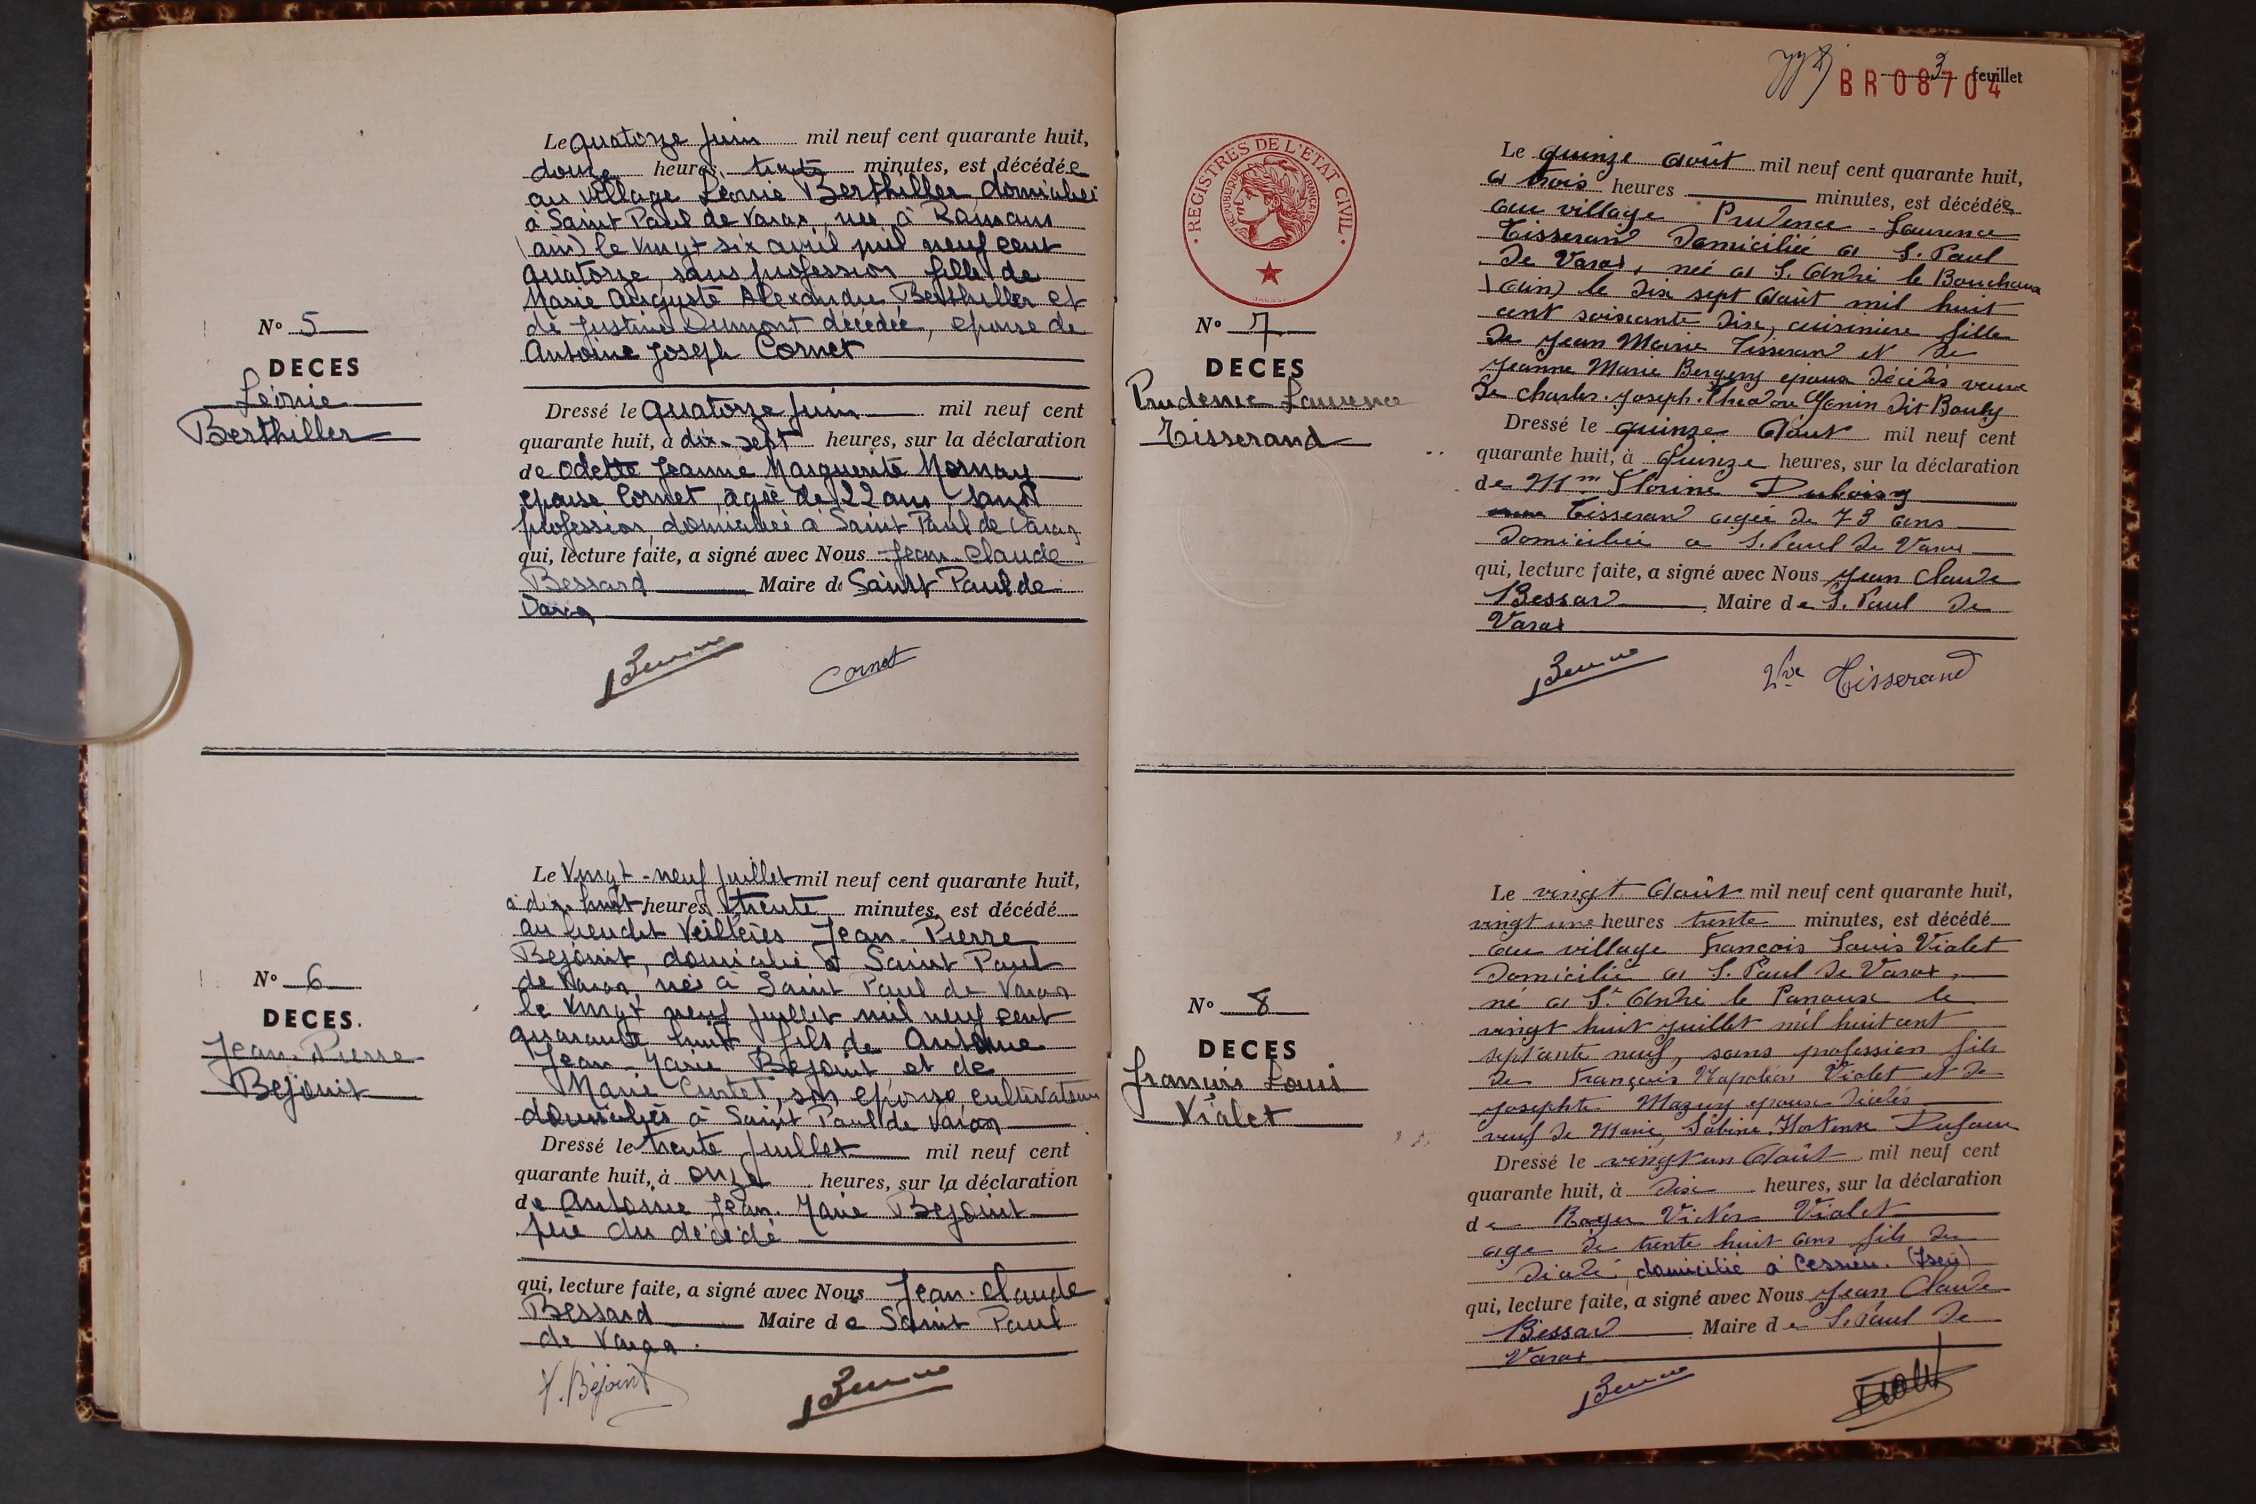 N° 5
DECES
Léonie
Berthiller
Le quatorze juin mil neuf cent quarante huit,
douze heures, trente minutes, est décédée
au village Léonie Berthiller domiciliée
à Saint Paul de Varax, née à Romans
(ain) le vingt six avril mil neuf cent
quatorze, sans profession fille de
Marie Auguste Alexandre Berthiller et
de Justine Dumont décédée, épouse de
Antoine Joseph Cornet
Dressé le quatorze juin mil neuf cent
quarante huit, à dix-sept heures, sur la déclaration
de Odette Jeanne Marguerite Mornay
épouse Cornet, agée de 22 ans, sans
profession, domiciliée à Saint Paul de Varax
qui, lecture faite, a signé avec Nous Jean-Claude
Bessard Maire de Saint Paul de
Varax
Cornet
N° 6
DECES.
Jean-Pierre
Bejoint
Le Vingt-neuf juillet mil neuf cent quarante huit,
à dix-huit heures, trente minutes, est décédé
au lieudit Veillères Jean-Pierre
Bejoint, domicilié à Saint Paul
de Varax, né à Saint Paul de Varax
le vingt neuf juillet mil neuf cent
quarante huit fils de Antoine
Jean-Marie Bejoint et de
Marie Curtet, son épouse, cultivateurs
domiciliés à Saint Paul de Varax
Dressé le trente juillet mil neuf cent
quarante huit, à onze heures, sur la déclaration
de Antoine Jean-Marie Bejoint
père du décédé
qui, lecture faite, a signé avec Nous Jean-Claude
Bessard Maire de Saint Paul
de Varax.
Béjoint
3 feuillet
BR 08704
REGISTRES DE L'ETAT CIVIL
REPUBLIQUE FRANÇAISE
N° 7
DECES
Prudence Laurence
Tisserand
Le quinze Août mil neuf cent quarante huit,
à trois heures minutes, est décédée
au village Prudence-Laurence
Tisserand domiciliée à S. Paul
de Varax, née à S. André le Bouchoux
(ain) le dix sept Août mil huit
cent soixante dix, cuisinière fille
de Jean Marie Tisserand et de
Jeanne Marie Bergery époux décédés veuve
de Charles-Joseph-Théodore Genin dit Bouly
Dressé le quinze Août mil neuf cent
quarante huit, à quinze heures, sur la déclaration
de Mme Florine Duboisy
Tisserand agée de 73 ans
domiciliée à S. Paul de Varax
qui, lecture faite, a signé avec Nous Jean Claude
Bessard Maire de S. Paul de
Varax
Vve Tisserand
N° 8
DECES
François Louis
Vialet
Le vingt Août mil neuf cent quarante huit,
vingt une heures trente minutes, est décédé
au village François Louis Vialet
domicilié à S. Paul de Varax,
né à St André le Panoux le
vingt huit juillet mil huit cent
septante neuf, sans profession fils
de François Napoléon Vialet et de
Josephte Mazuy époux décédés
veuf de Marie, Sabine, Hortense Dufour
Dressé le vingt un Août mil neuf cent
quarante huit, à dix heures, sur la déclaration
de Roger Victor Vialet
age de trente huit ans fils du
décédé, domicilié à Cessieu. (Isère)
qui, lecture faite, a signé avec Nous Jean Claude
Bessard Maire de S. Paul de
Varax
Vialet